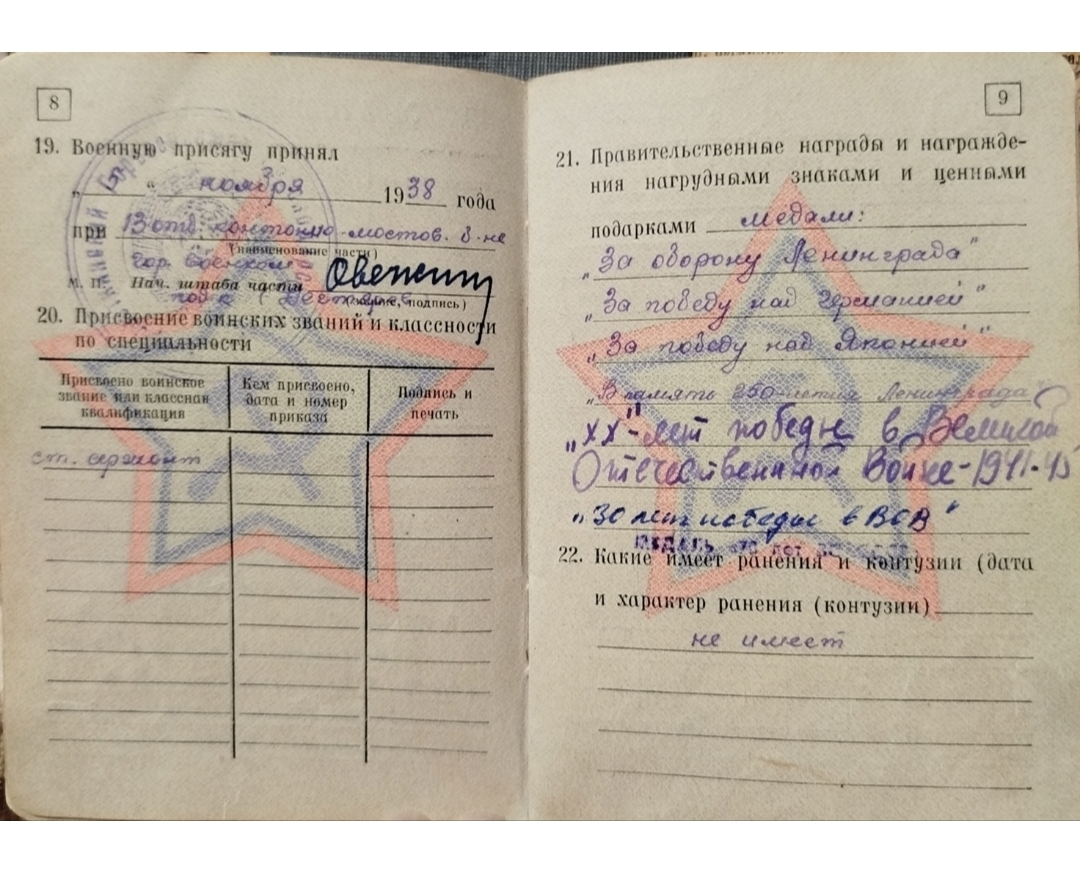 8
19. Военную присягу принял
„ “ ноября 1938 года
при 13 отд. понтонно-мостов. б-не
(наименование части)
гор. военком
М. П. Нач. штаба части
подп (подпись)
20. Присвоение воинских званий и классности
по специальности
Присвоено воинское звание или классная квалификация
Кем присвоено, дата и номер приказа
Подпись и печать
ст. сержант
9
21. Правительственные награды и награжде-
ния нагрудными знаками и ценными
подарками медали:
„За оборону Ленинграда"
„За победу над Германией"
„За победу над Японией"
„В память 250-летия Ленинграда"
„ХХ"-лет победы в Великой
Отечественной Войне-1941-45
„30 лет победы в ВОВ"
МЕДАЛЬ лет
22. Какие имеет ранения и контузии (дата
и характер ранения (контузии)
не имеет